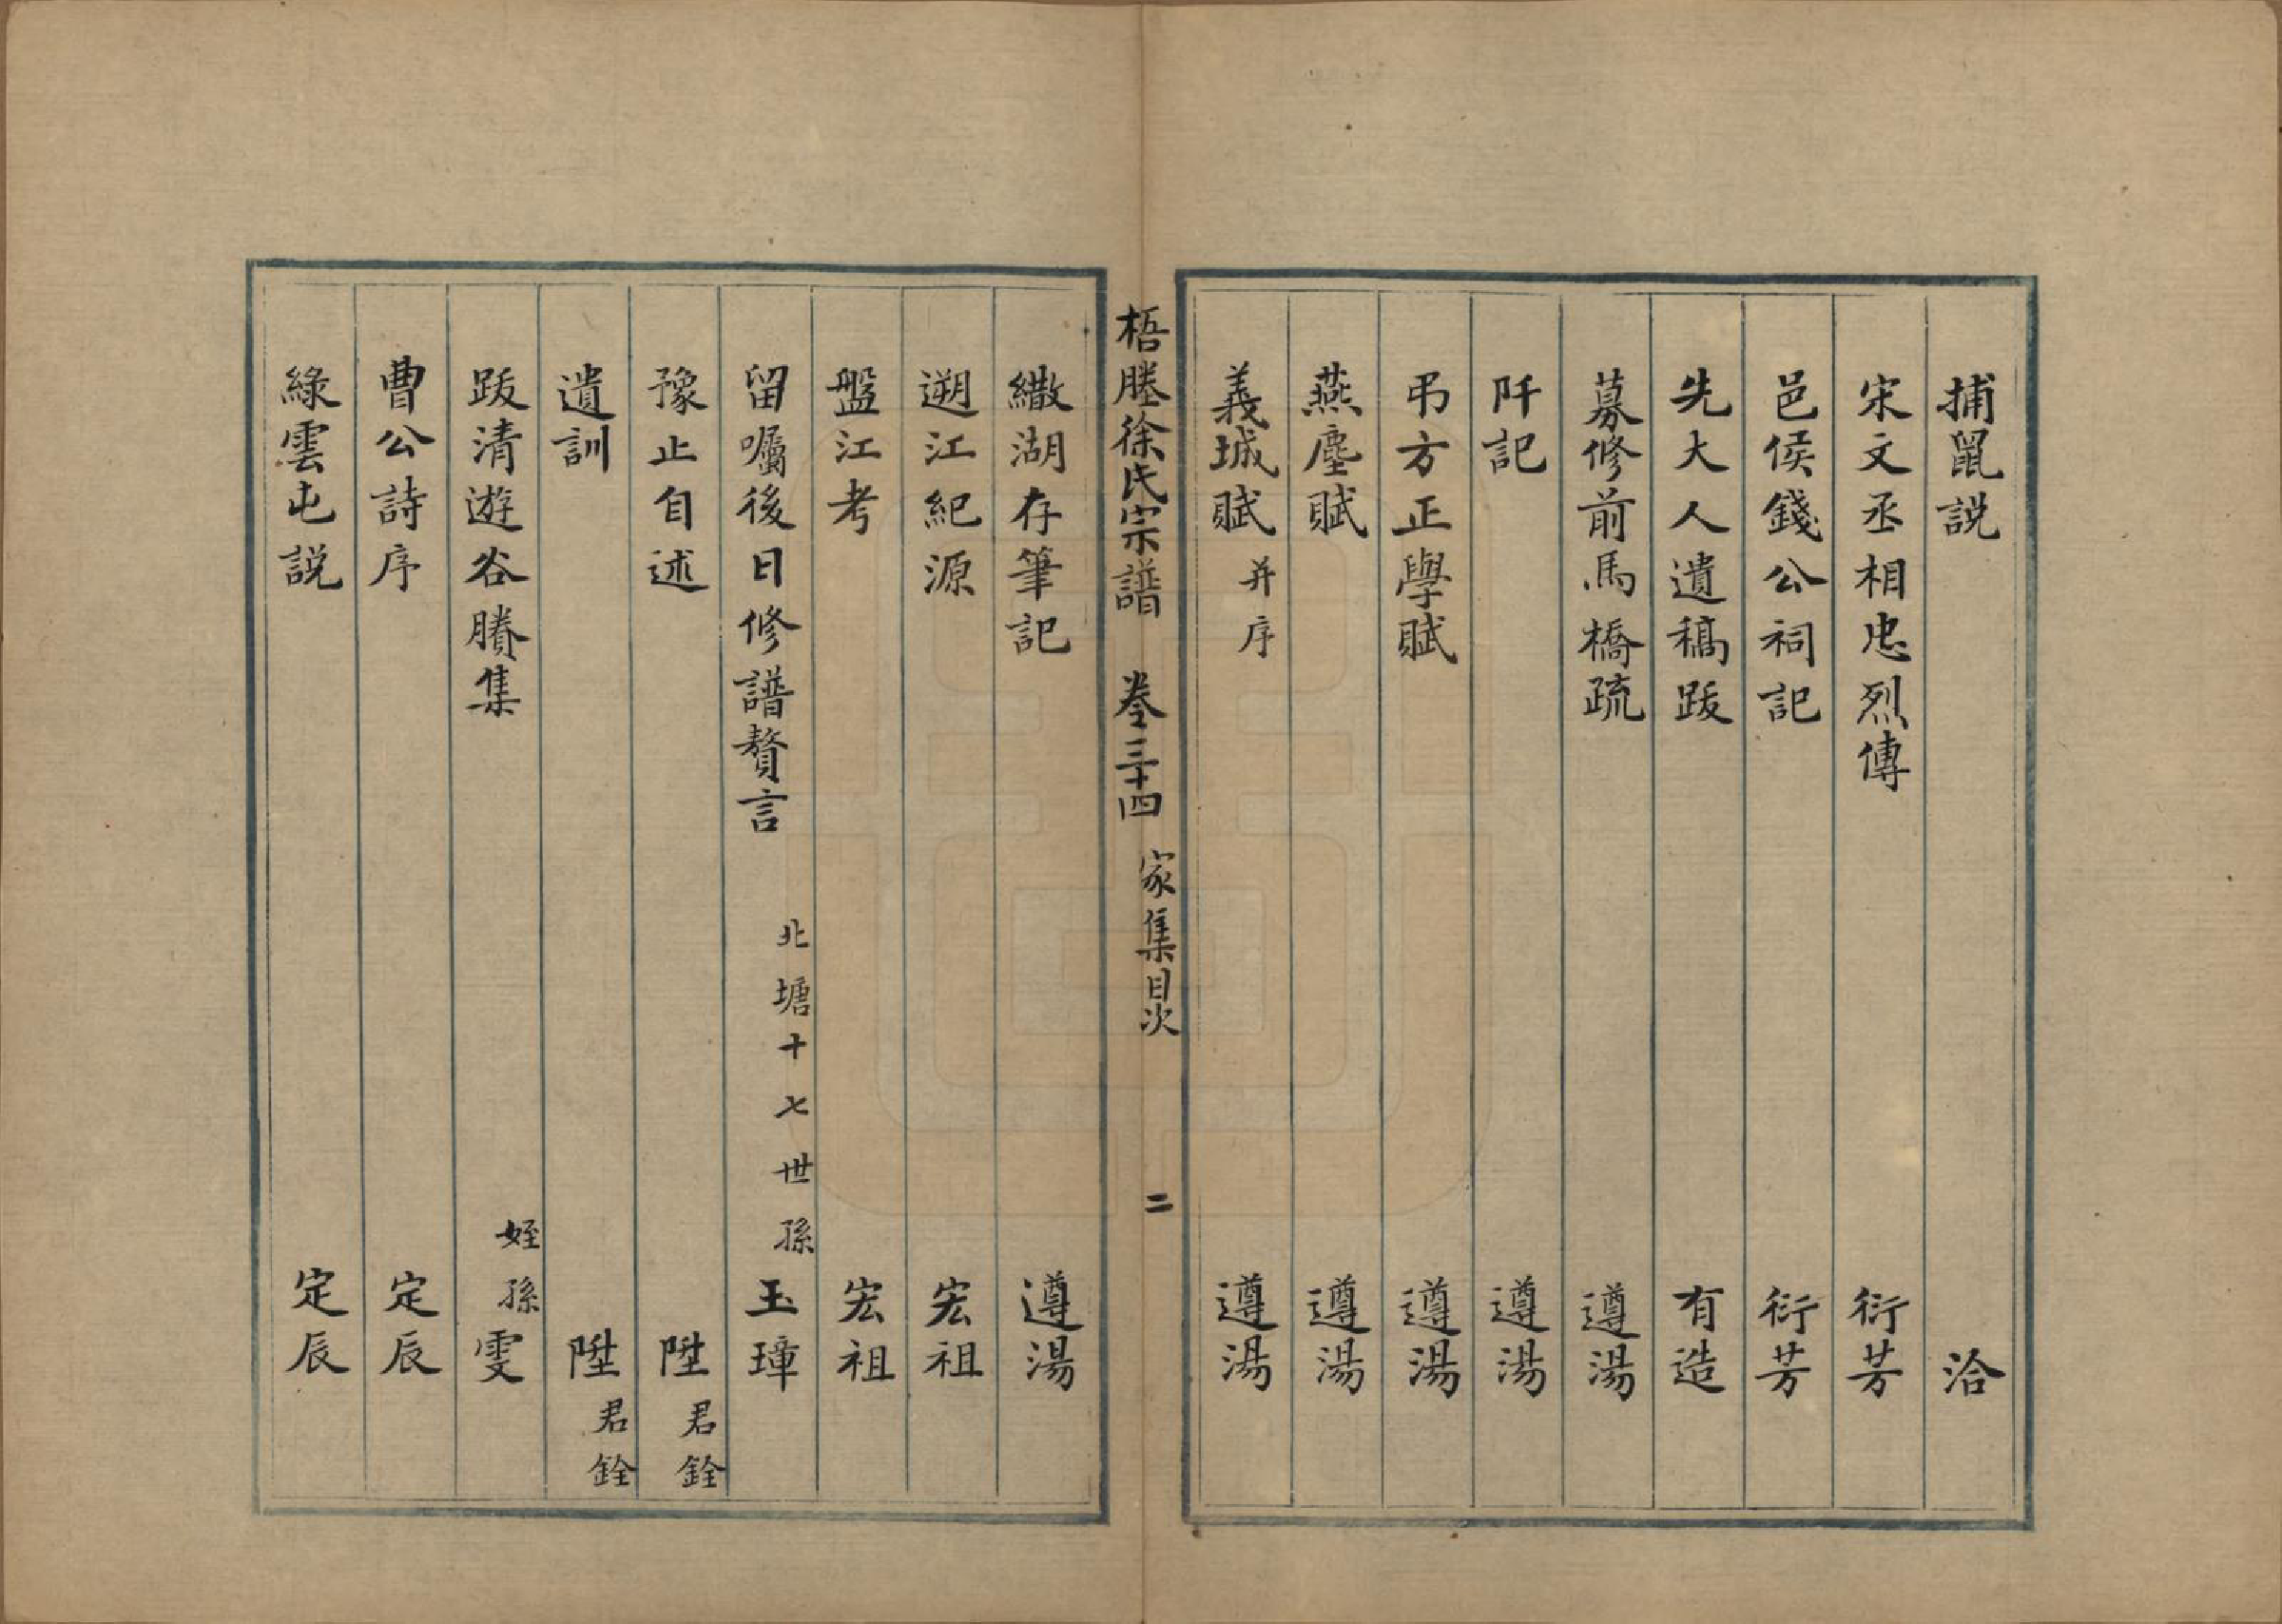 捕鼠説 洽
宋文丞相忠烈傳 衍芳
邑侯錢公祠記 衍芳
先大人遺稿跋 有造
募修前馬橋疏 遵湯
阡記 遵湯
弔方正學賦 遵湯
燕塵賦 遵湯
義城賦 并序 遵湯
梧塍徐氏宗譜 卷三十四 家集目次 二
繖湖存筆記 遵湯
遡江紀源 宏祖
盤江考 宏祖
留囑後日修譜贅言 北塘十七世孫 玉璋
豫止自述 陞 君銓
遺訓 陞 君銓
跋清遊谷賸集 姪孫 雯
曹公詩序 定辰
綠雲屯説 定辰